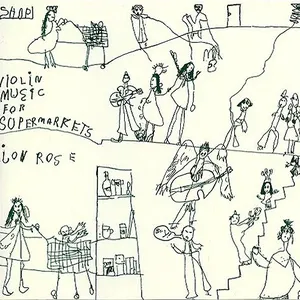 SHOP
VIOLIN
MUSIC
FOR
SUPERMARKETS
JON ROSE